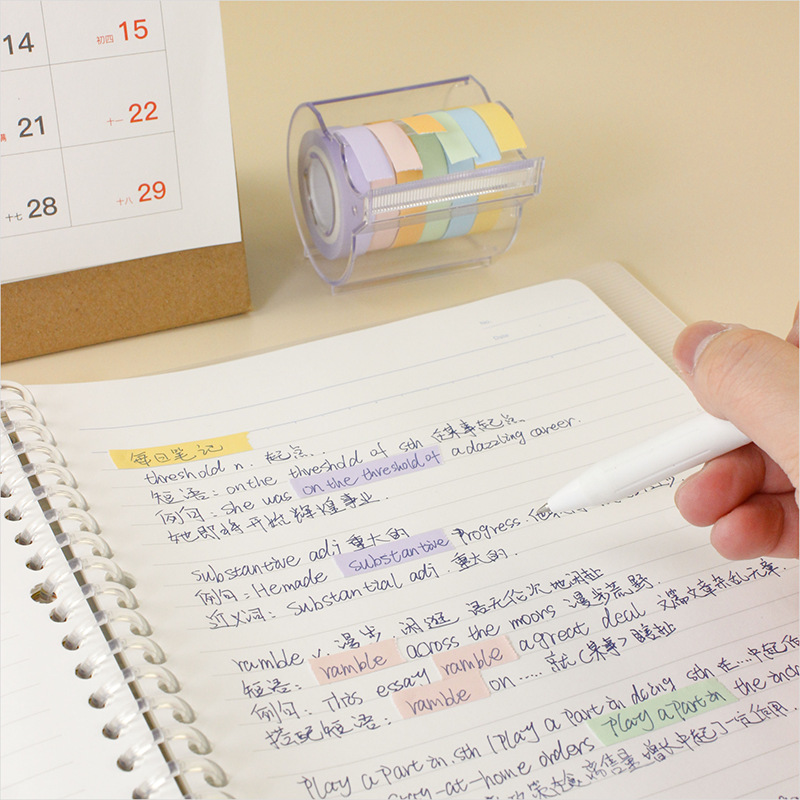 14 初四 15
21 十一 22
十七 28 十八 29
No.
Date
每日笔记
threshold n. 起点.
短语: on the threshold of sth 在某事起点
例句: She was on the threshold of a dazzling career.
她即将开始辉煌事业.
substantive adj 重大的
例句: He made substantive Progress.
近义词: Substantial adj. 重大的.
ramble v. 漫步, 闲逛 语无伦次地闲扯
短语: ramble across the moors 漫步荒野.
例句: This essay ramble a great deal 文章杂乱无章.
搭配短语: ramble on ..... 就(某事)瞎扯
Play a Part in. sth / Play a Part in doing sth 在....中起作
at-home orders Play a Part in the
增长中起了一定作用.